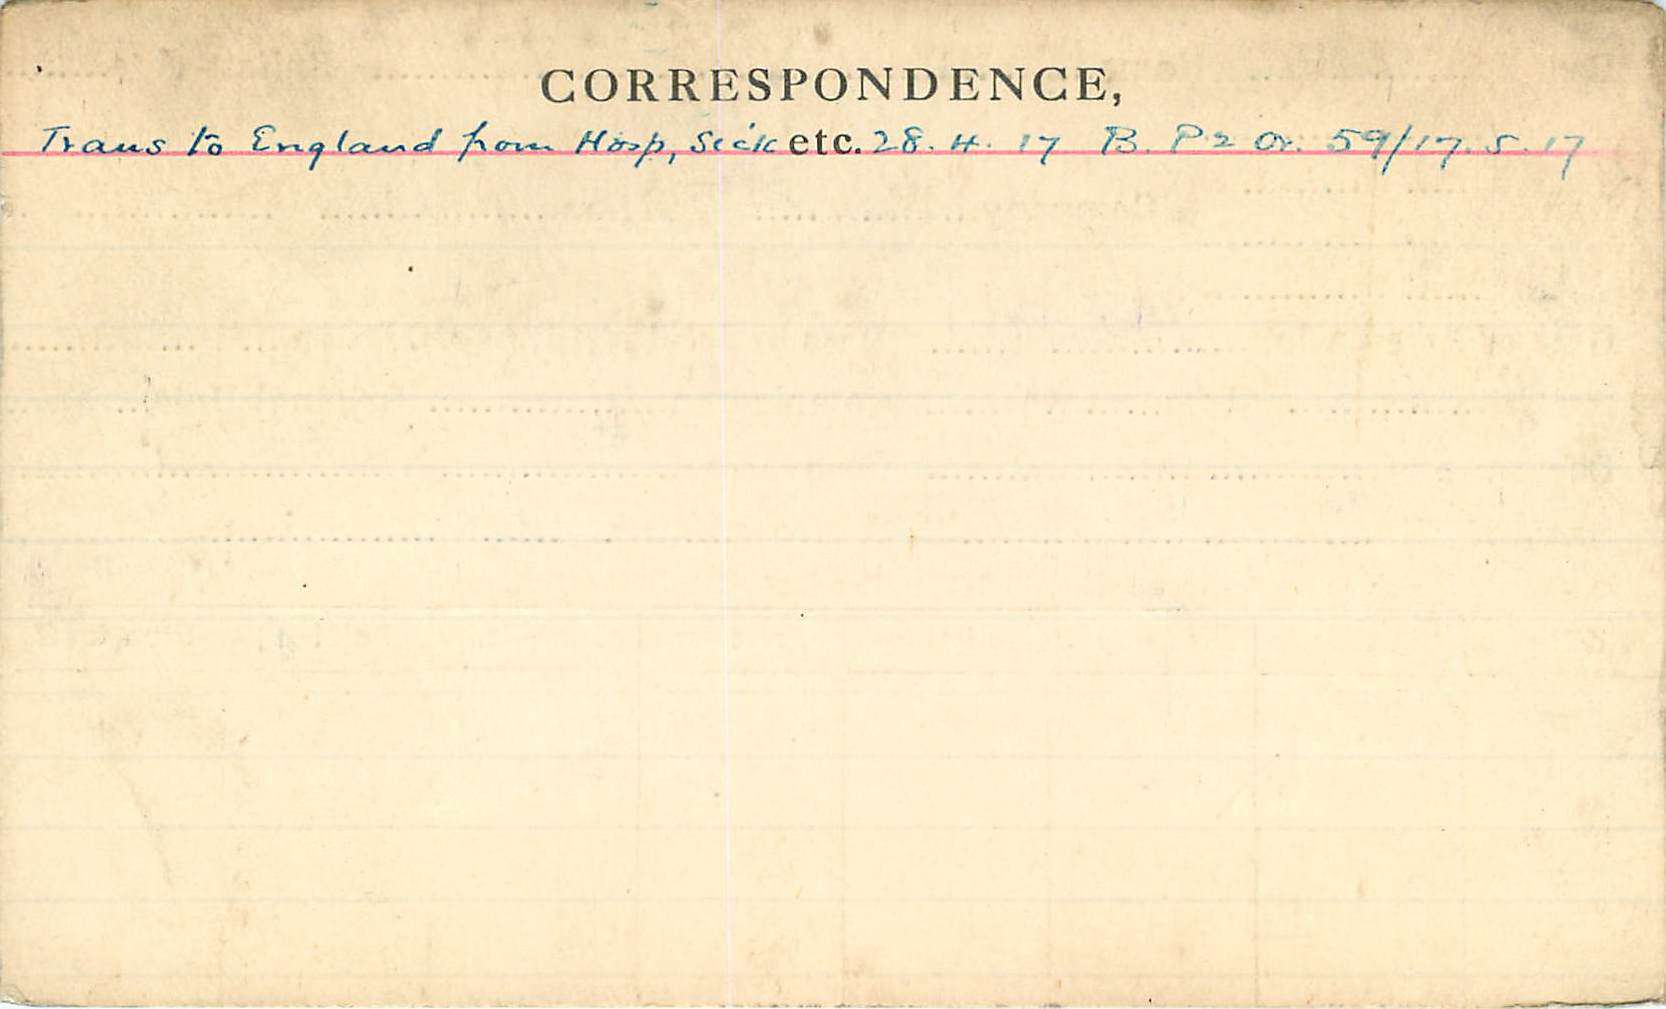 CORRESPONDENCE,
Trans to England from Hosp, Sick etc. 28. 4. 17 B. P2 Or. 59/17. 5. 17